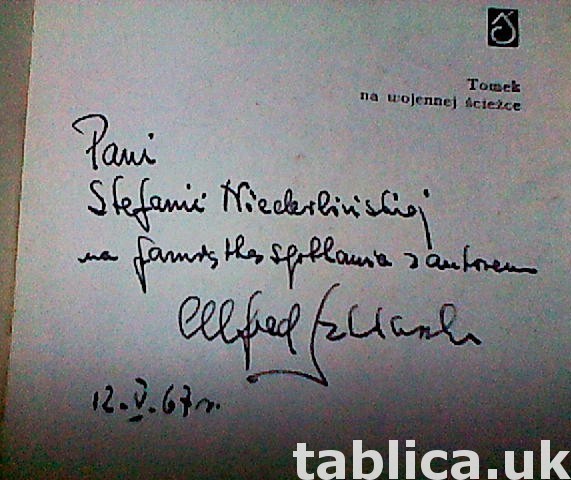 Tomek
na wojennej ścieżce
Pani
Stefanii Niederlińskiej
na pamiątkę spotkania z autorem
Alfred Szklarski
12.V.67 r.
tablica.uk